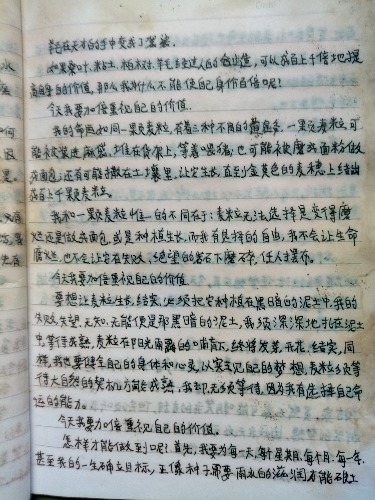 羊毛在天才的手中变成了袈裟。
如果桑叶、粘土、柏树、羊毛经过人的创造,可以成百上千倍地提
高自身的价值,那么我为什么不能使自己身价百倍呢!
今天我要加倍重视自己的价值。
我的命运如同一颗麦粒,有着三种不同的 一颗麦粒可
能被装进麻袋,堆在货架上,等着喂猪;也可能被磨成面粉做
成面包;还有可能撒在土壤里,让它生长,直到金黄色的麦穗上结出
成百上千颗麦粒。
我和一颗麦粒唯一的不同在于:麦粒无法选择是变得腐
烂还是做成面包,或是种植生长。而我有选择的自由,我不会让生命
腐烂,也不会让它在失败、绝望的岩石下磨碎,任人摆布。
今天我要加倍重视自己的价值。
要想让麦粒生长、结实,必须把它种植在黑暗的泥土中,我的
失败、失望、无知、无能便是那黑暗的泥土,我须深深地扎在泥土
中,等待成熟。麦粒在阳光雨露的哺育下,终将发芽、开花、结实。同
样,我也要健全自己的身体和心灵,以实现自己的梦想。麦粒须等
待大自然的契机方能成熟,我却无须等待,因为我有选择自己命
运的能力。
今天我要加倍重视自己的价值。
怎样才能做到呢?首先,我要为每一天、每个星期、每个月、每一年、
甚至我的一生确立目标。正像种子需要雨水的滋润才能破土